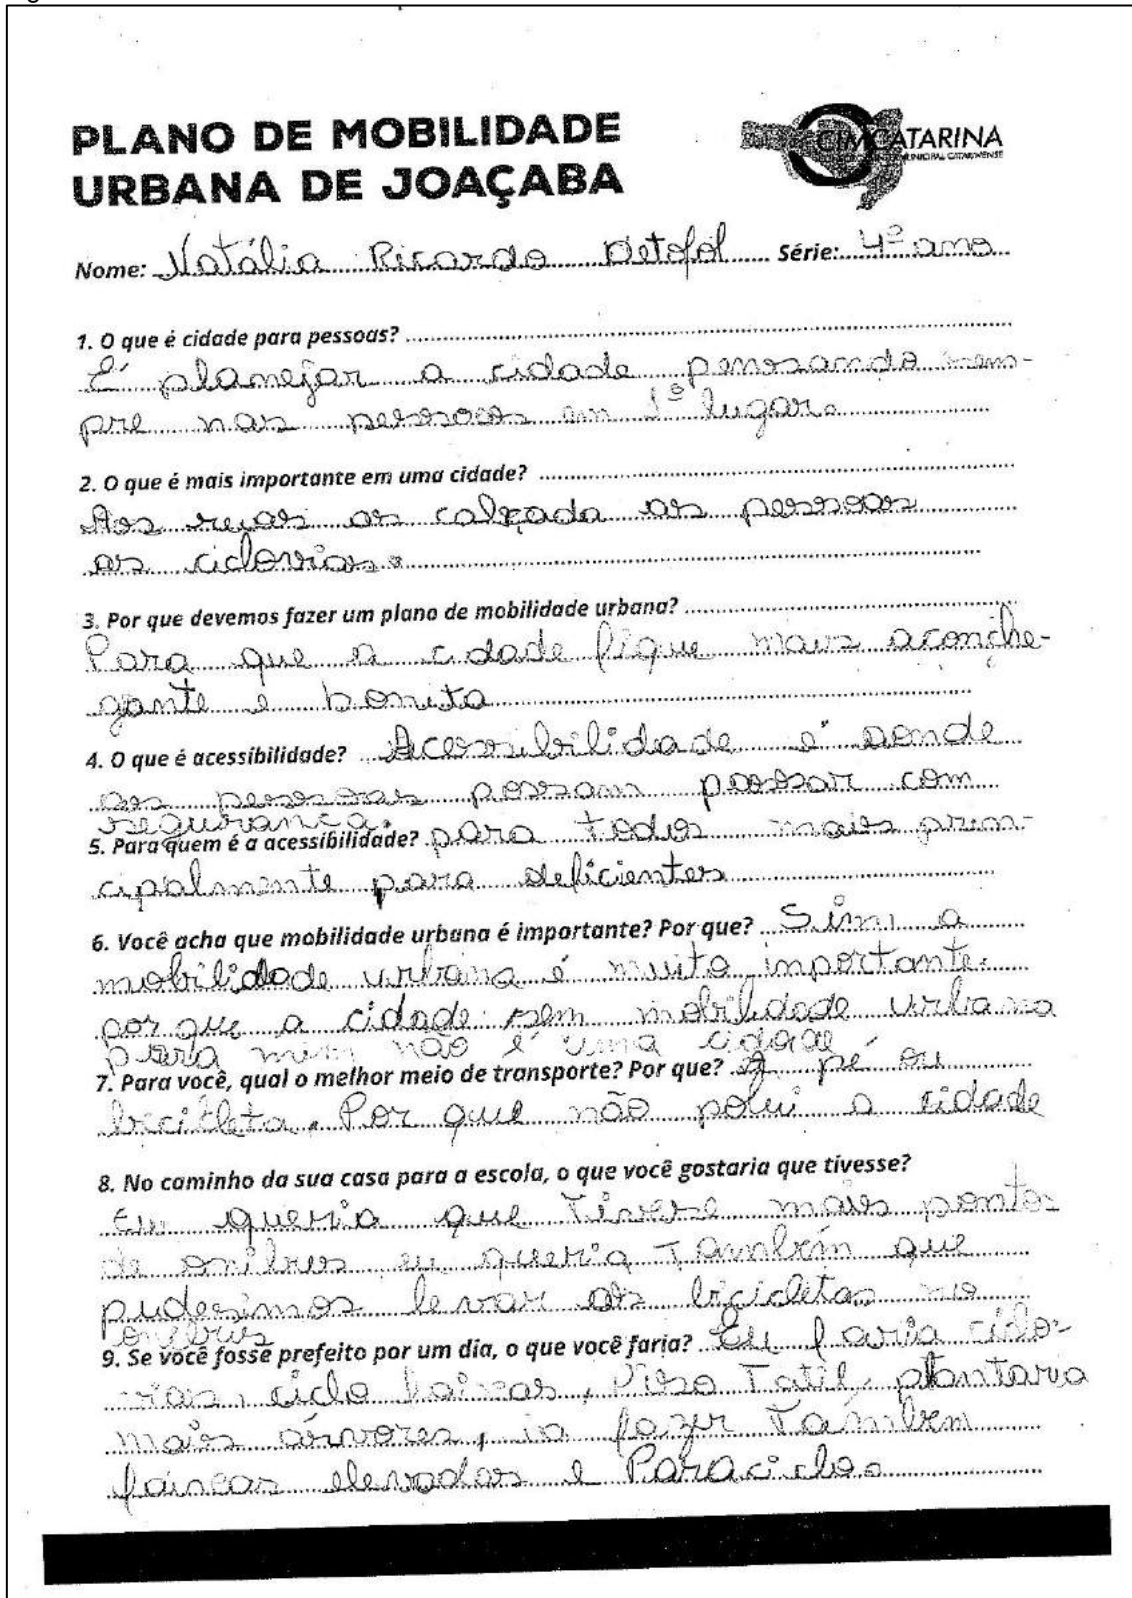 PLANO DE MOBILIDADE
URBANA DE JOAÇABA
CIMCATARINA
Nome: Natália Ricardo Detofol Série: 4º ano
1. O que é cidade para pessoas?
É planejar a cidade penssando sem-
pre nas pessoas em 1º lugar.
2. O que é mais importante em uma cidade?
Aos ruas as calçada as pessoas
as ciclovias.
3. Por que devemos fazer um plano de mobilidade urbana?
Para que a cidade fique mais aconche-
gante e bonita
4. O que é acessibilidade? Acessibilidade é aonde
as pessoas possam passar com
segurança.
5. Para quem é a acessibilidade? para todos mais prin-
cipalmente para deficientes
6. Você acha que mobilidade urbana é importante? Por que? Sim, a
mobilidade urbana é muito importante.
por que a cidade sem mobilidade urbana
para mim não é uma cidade
7. Para você, qual o melhor meio de transporte? Por que? A pé ou
bicicleta. Por que não polui a cidade
8. No caminho da sua casa para a escola, o que você gostaria que tivesse?
Eu queria que tivese mais ponto
de onibus eu queria Também que
pudesimos levar as bicicletas no
onibus
9. Se você fosse prefeito por um dia, o que você faria? Eu faria ciclo-
vias, ciclo faixas, Piso Tatil, plantaria
mais árvores, ia fazer Também
faixas elevadas e Paraciclo.